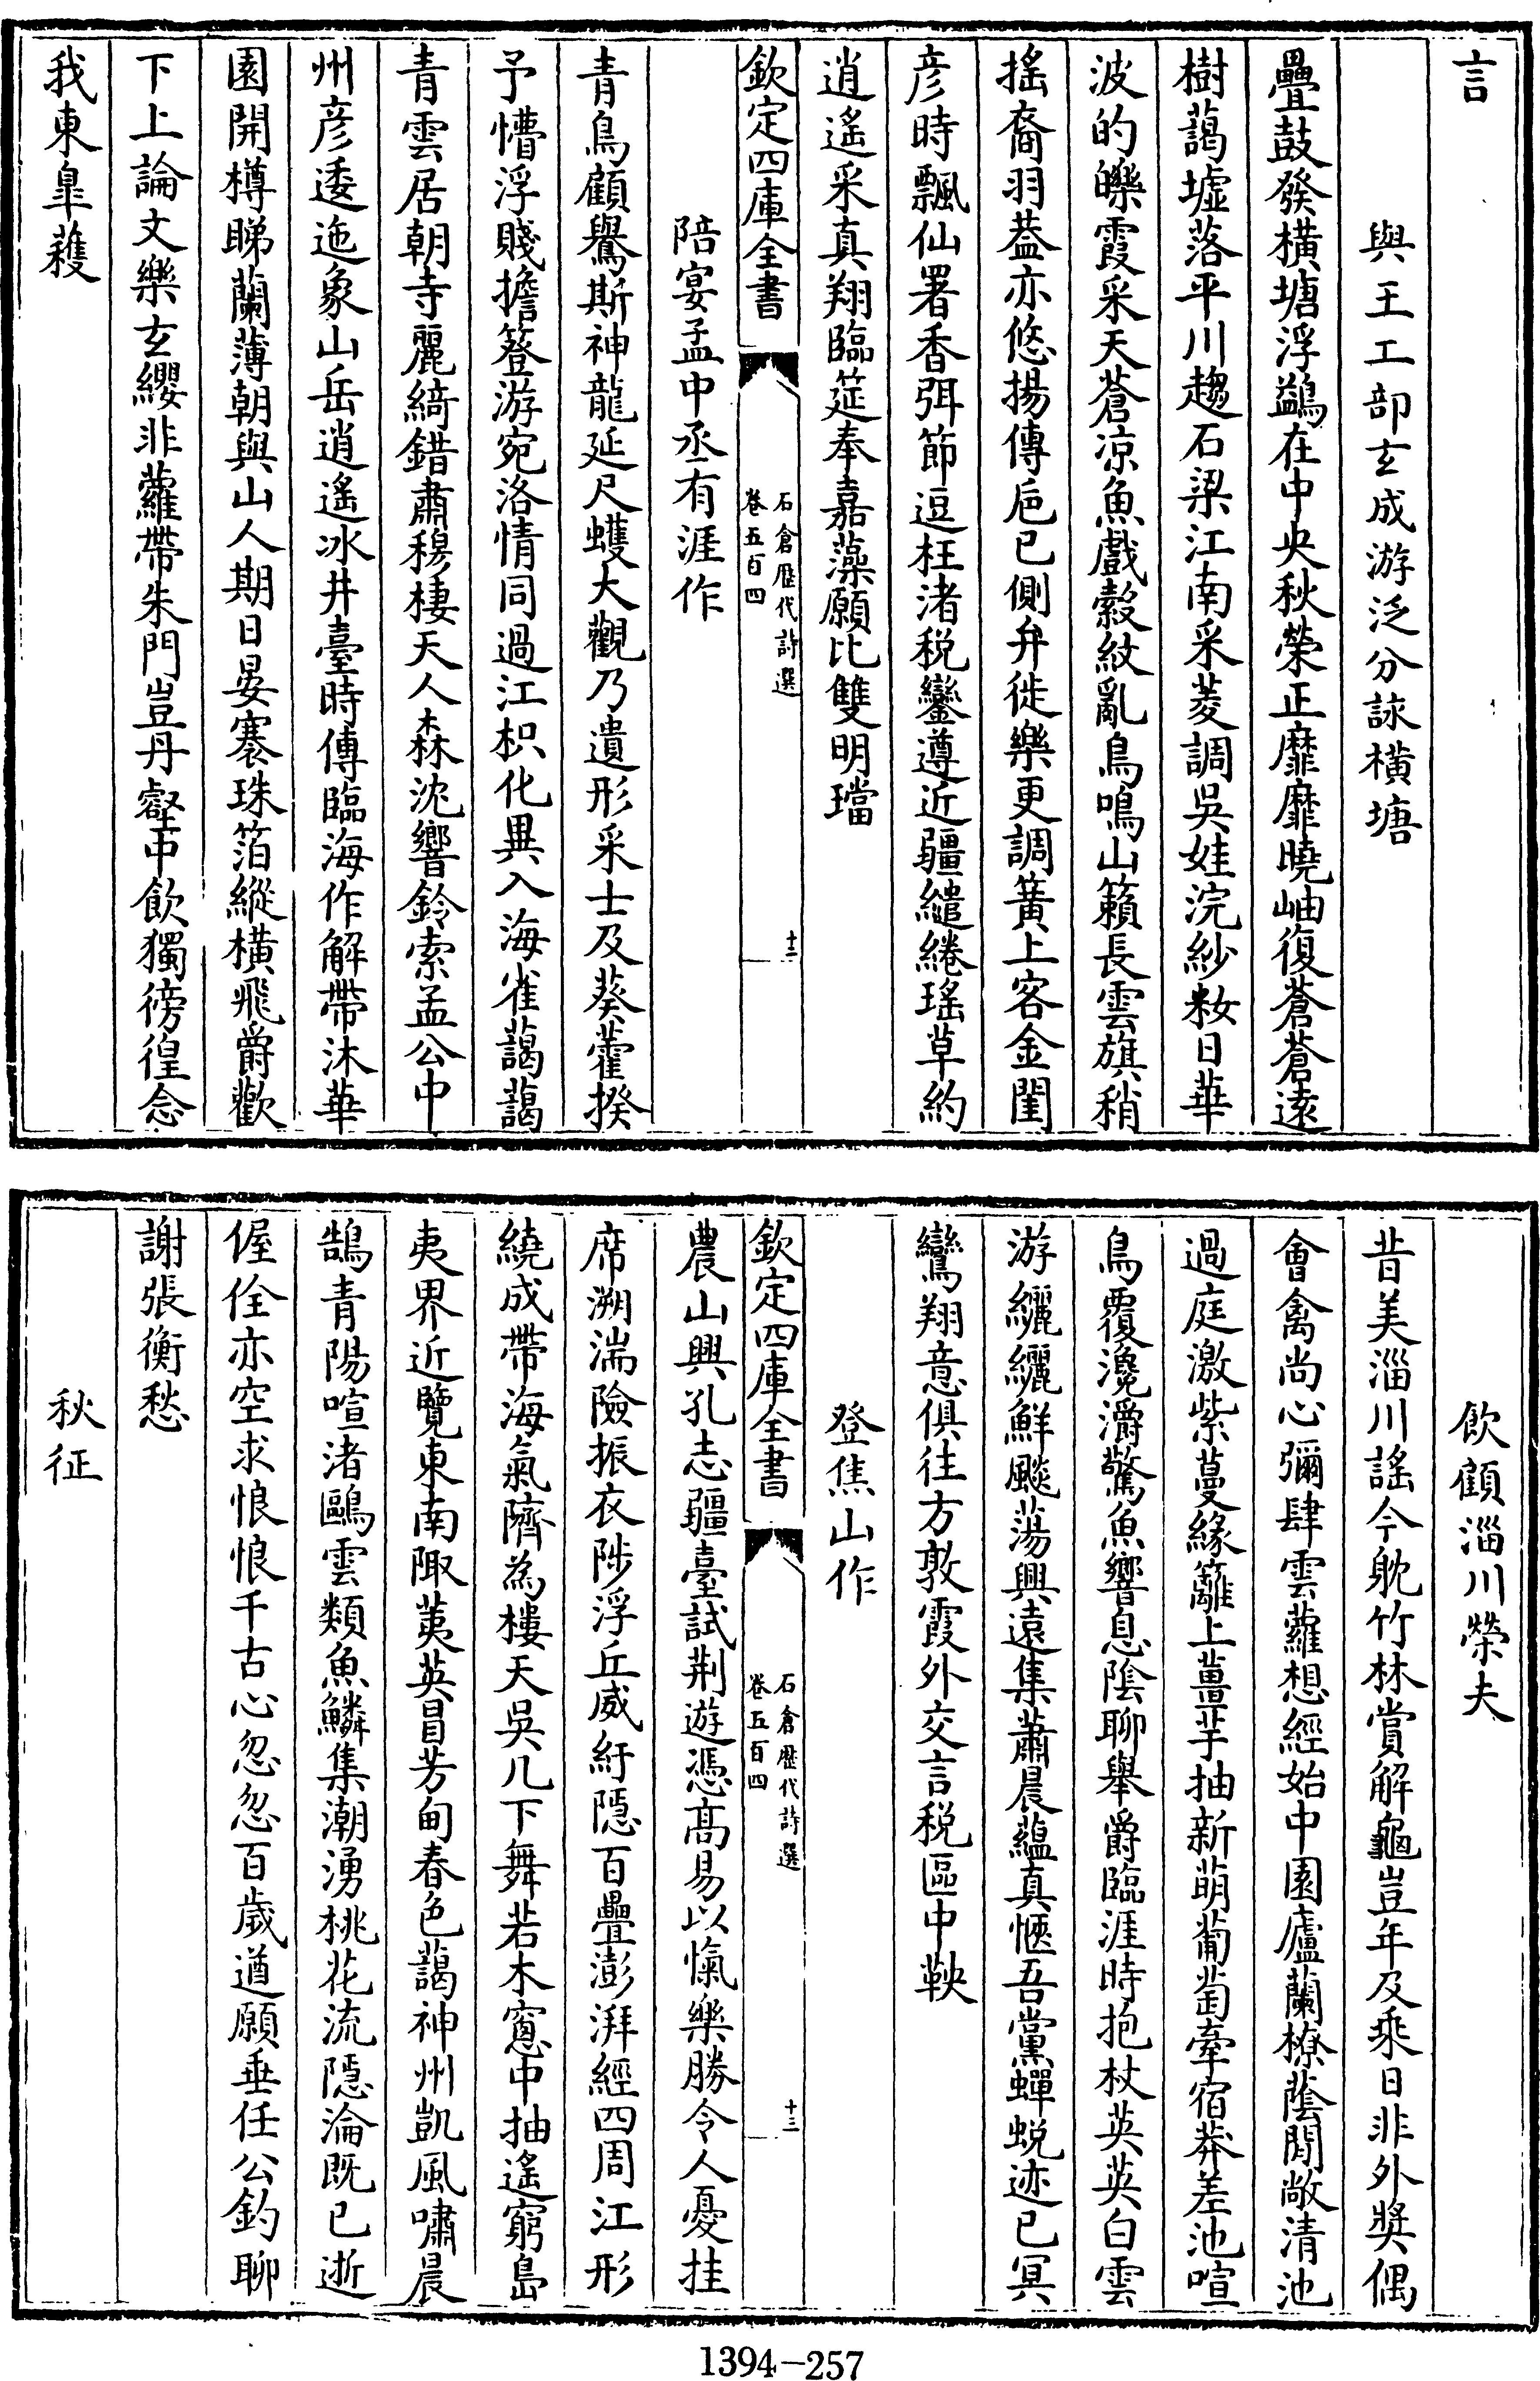 言
與王工部玄成游泛分詠橫塘
疊鼓發橫塘浮鷁在中央秋榮正靡靡曉岫復蒼蒼遠
樹藹墟落平川趨石梁江南采菱調吳娃浣紗籹日華
波的皪霞采天蒼凉魚戲縠紋亂鳥鳴山籟長雲旗稍
搖裔羽葢亦悠揚傳巵已側弁徙樂更調簧上客金閨
彦時飄仙署香弭節逗枉渚税鑾遵近疆繾綣瑤草約
逍遙采真翔臨筵奉嘉藻願比雙明璫
欽定四庫全書
石倉歷代詩選
卷五百四
十二
陪宴孟中丞有涯作
青鳥顧鷽斯神龍延尺蠖大觀乃遺形采士及葵藿揆
予懵浮賤擔簦游宛洛情同過江枳化異入海雀藹藹
青雲居朝寺麗綺錯肅穆棲天人森沈響鈴索孟公中
州彦逶迤象山岳逍遙冰井臺時傳臨海作解帶沐華
園開樽睇蘭薄朝與山人期日晏褰珠箔縱橫飛爵歡
下上論文樂玄纓非蘿帶朱門豈丹壑中飲獨徬徨念
我東臯蒦
飲顧淄川榮夫
昔美淄川謠今躭竹林賞解龜豈年及乘日非外獎偶
會禽尚心彌肆雲蘿想經始中園廬蘭橑蔭閒敞清池
過庭激紫蔓緣籬上薑芋抽新萌葡萄牽宿莽差池喧
鳥覆瀺灂驚魚響息陰聊舉爵臨涯時抱杖英英白雲
游纚纚鮮飈蕩興遠集蕭晨蘊真愜吾黨蟬蛻迹已冥
鸞翔意俱往方敦霞外交言税區中鞅
登焦山作
欽定四庫全書
石倉歷代詩選
卷五百四
十三
農山興孔志疆臺試荆遊憑高易以愾樂勝令人憂挂
席溯湍險振衣陟浮丘威紆隠百疊澎湃經四周江形
繞成帶海氣隮為樓天吳几下舞若木窻中抽遙窮島
夷界近覽東南陬荑英冒芳甸春色藹神州凱風嘯晨
鵠青陽喧渚鷗雲類魚鱗集潮湧桃花流隠淪既已逝
偓佺亦空求悢悢千古心忽忽百歲遒願垂任公釣聊
謝張衡愁
秋征
1394-257